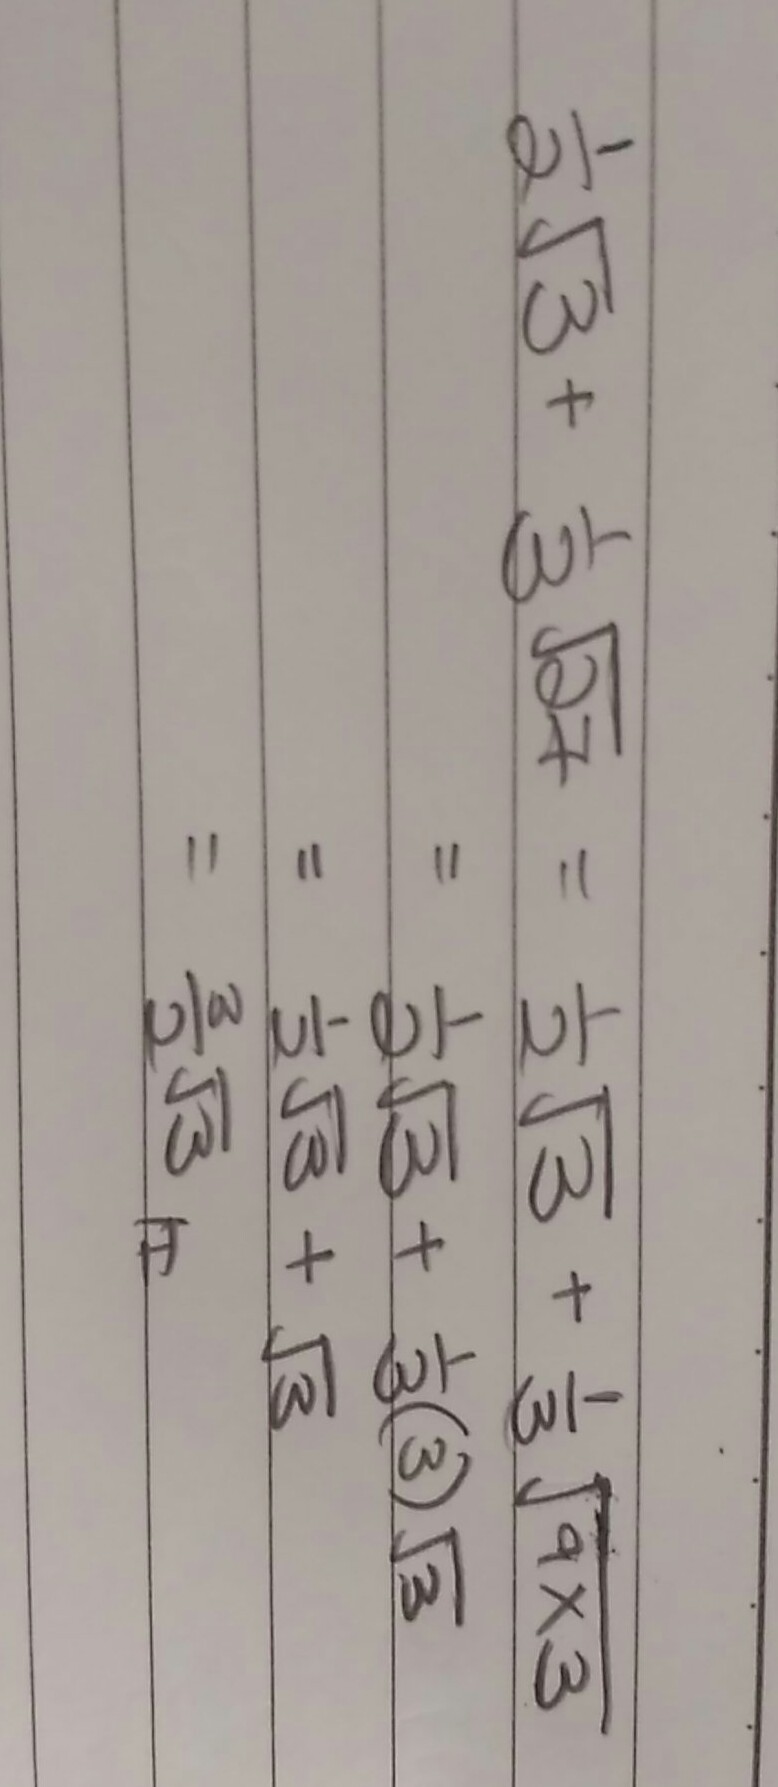 ½√3 + ⅓√27 = ½√3 + ⅓√9×3
= ½√3 + ⅓(3)√3
= ½√3 + √3
= 3/2√3 #